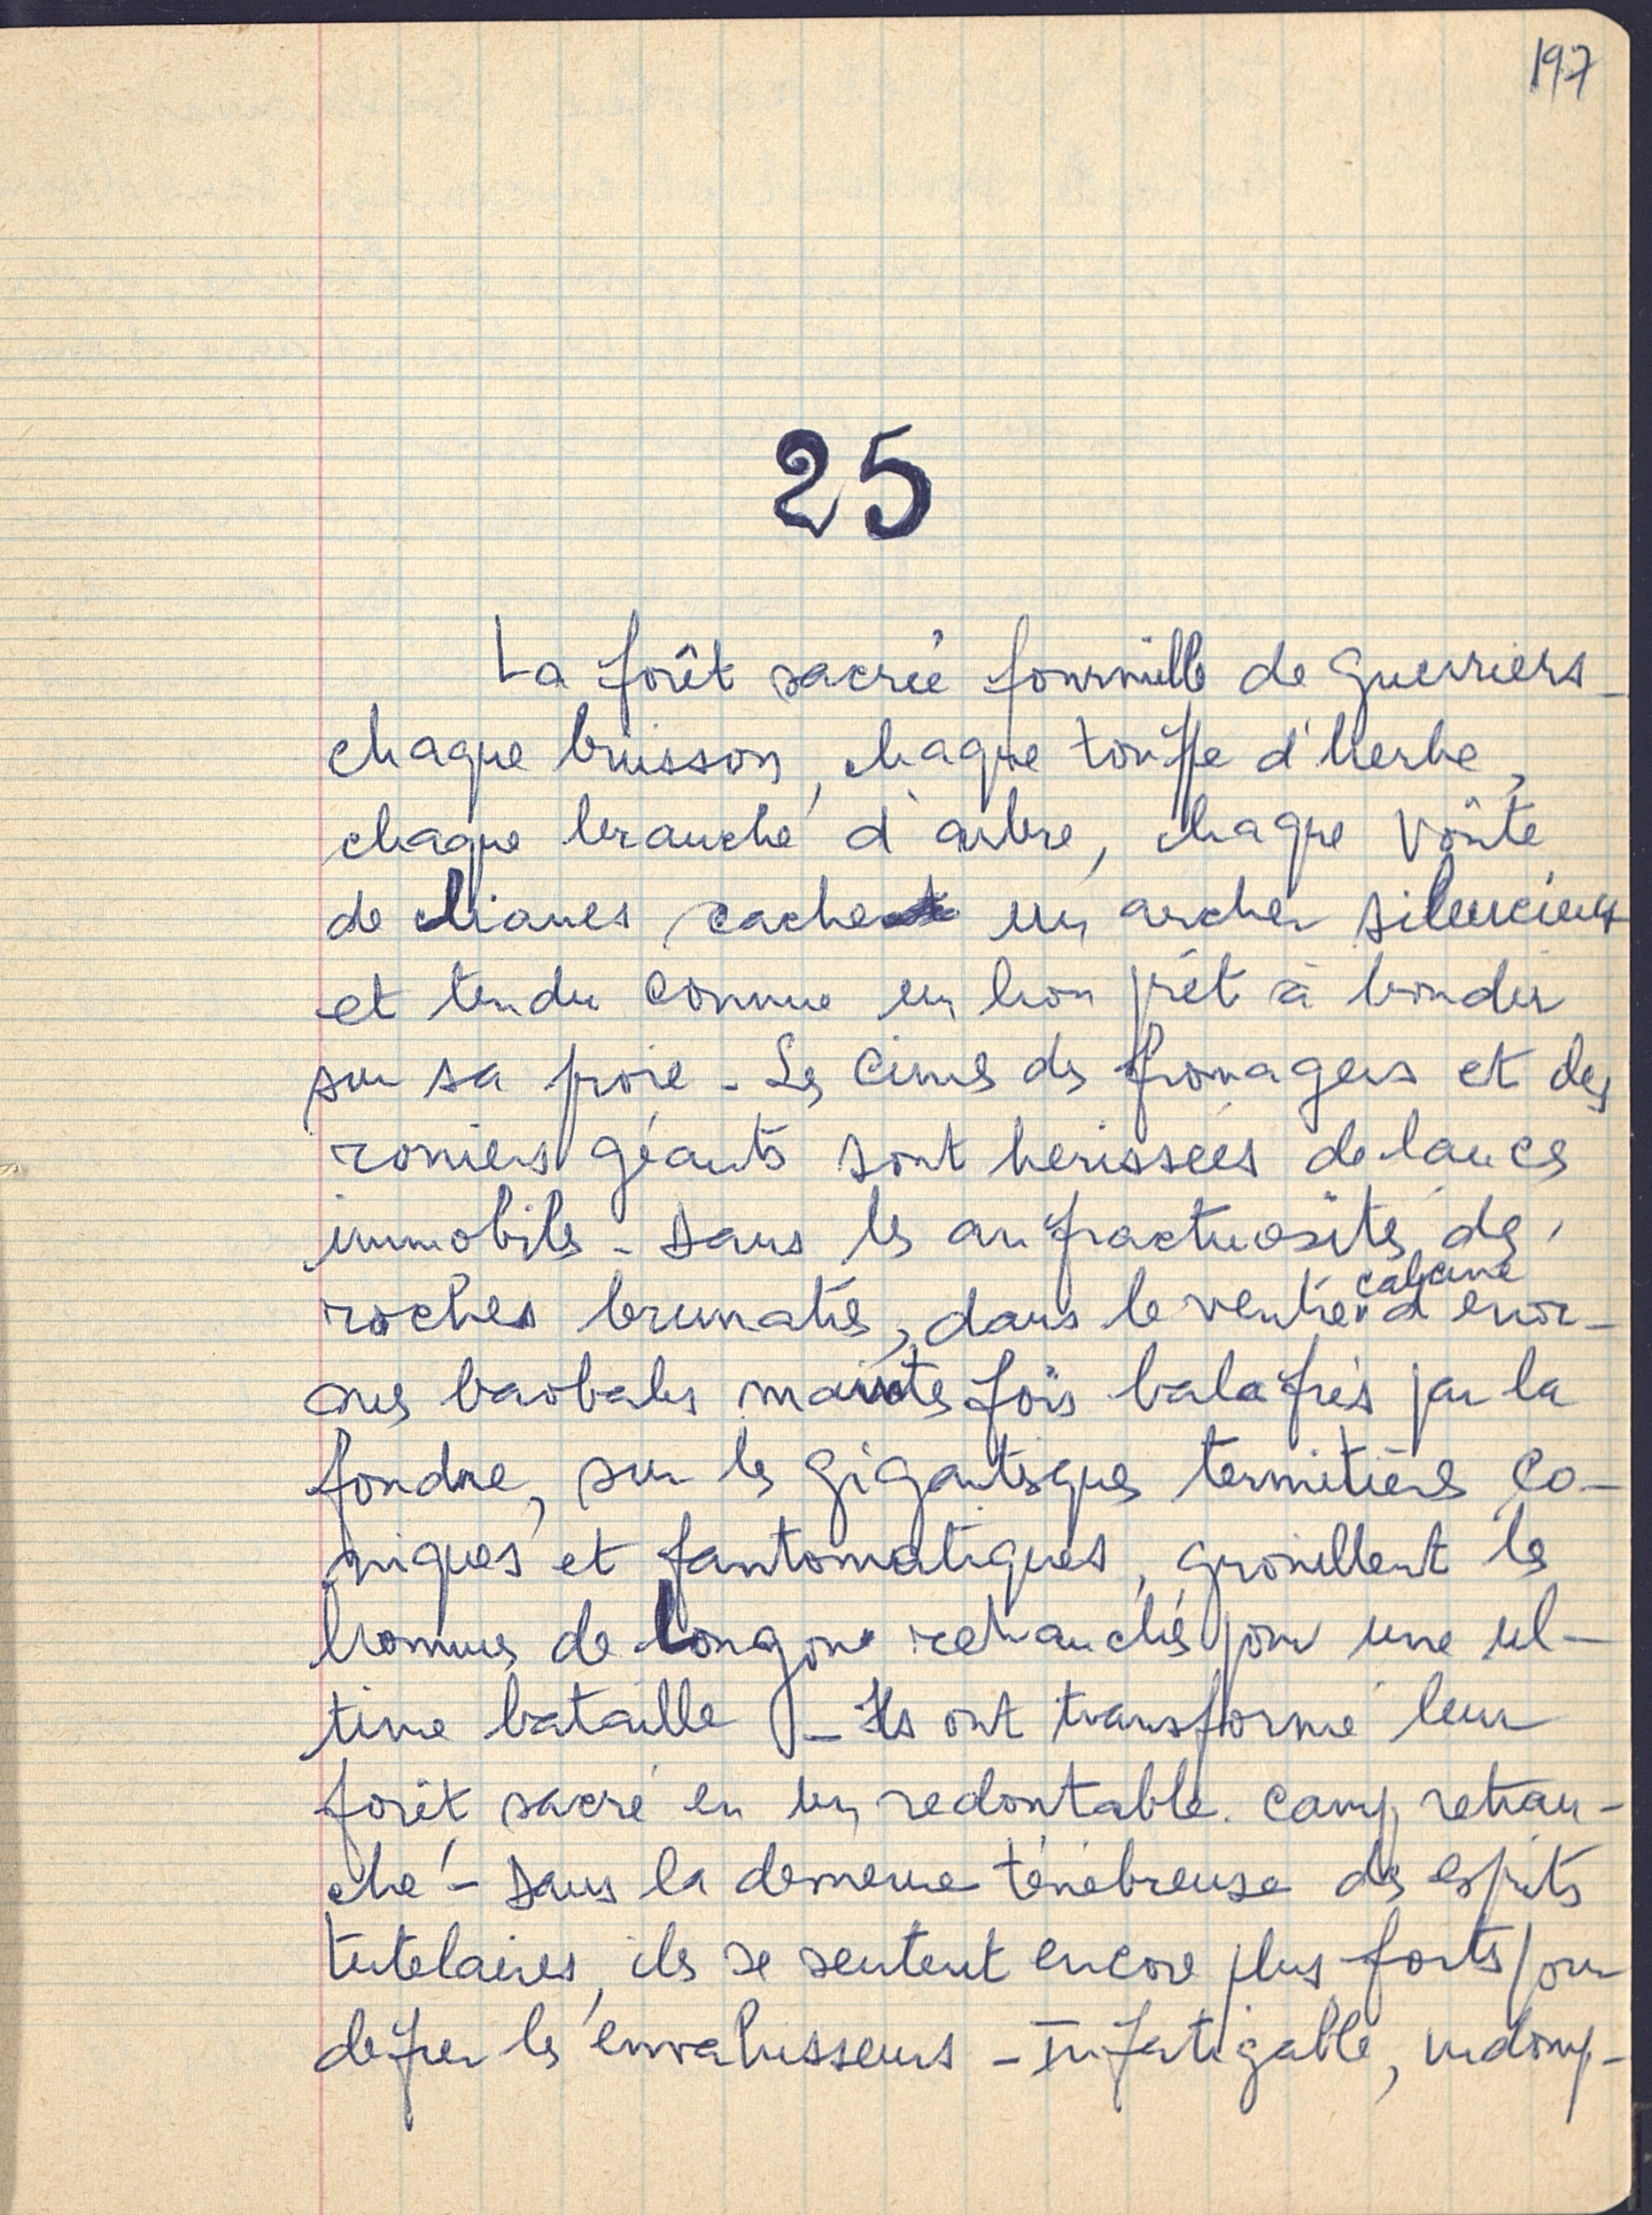 197
25
La forêt sacrée fourmille de guerriers -
chaque buisson, chaque touffe d'herbe,
chaque branche d'arbre, chaque voûte
de lianes cache un archer silencieux
et tendu comme un lion prêt à bondir
sur sa proie - Les cimes des fromagers et des
roniers géants sont herissées de lances
immobiles - Dans les anfractuosités des
roches brunatres, dans le ventre calciné d'énor-
mes baobabs maintes fois balafrés par la
foudre, sur les gigantesques termitières co-
niques et fantomatiques, grouillent les
hommes de Longone retranchés pour une ul-
time bataille - Ils ont transformé leur
forêt sacré en un redoutable camp retran-
ché - Dans la demeure ténébreuse des esprits
tutelaires, ils se sentent encore plus forts pour
defier les envahisseurs - Infatigable, indomp-